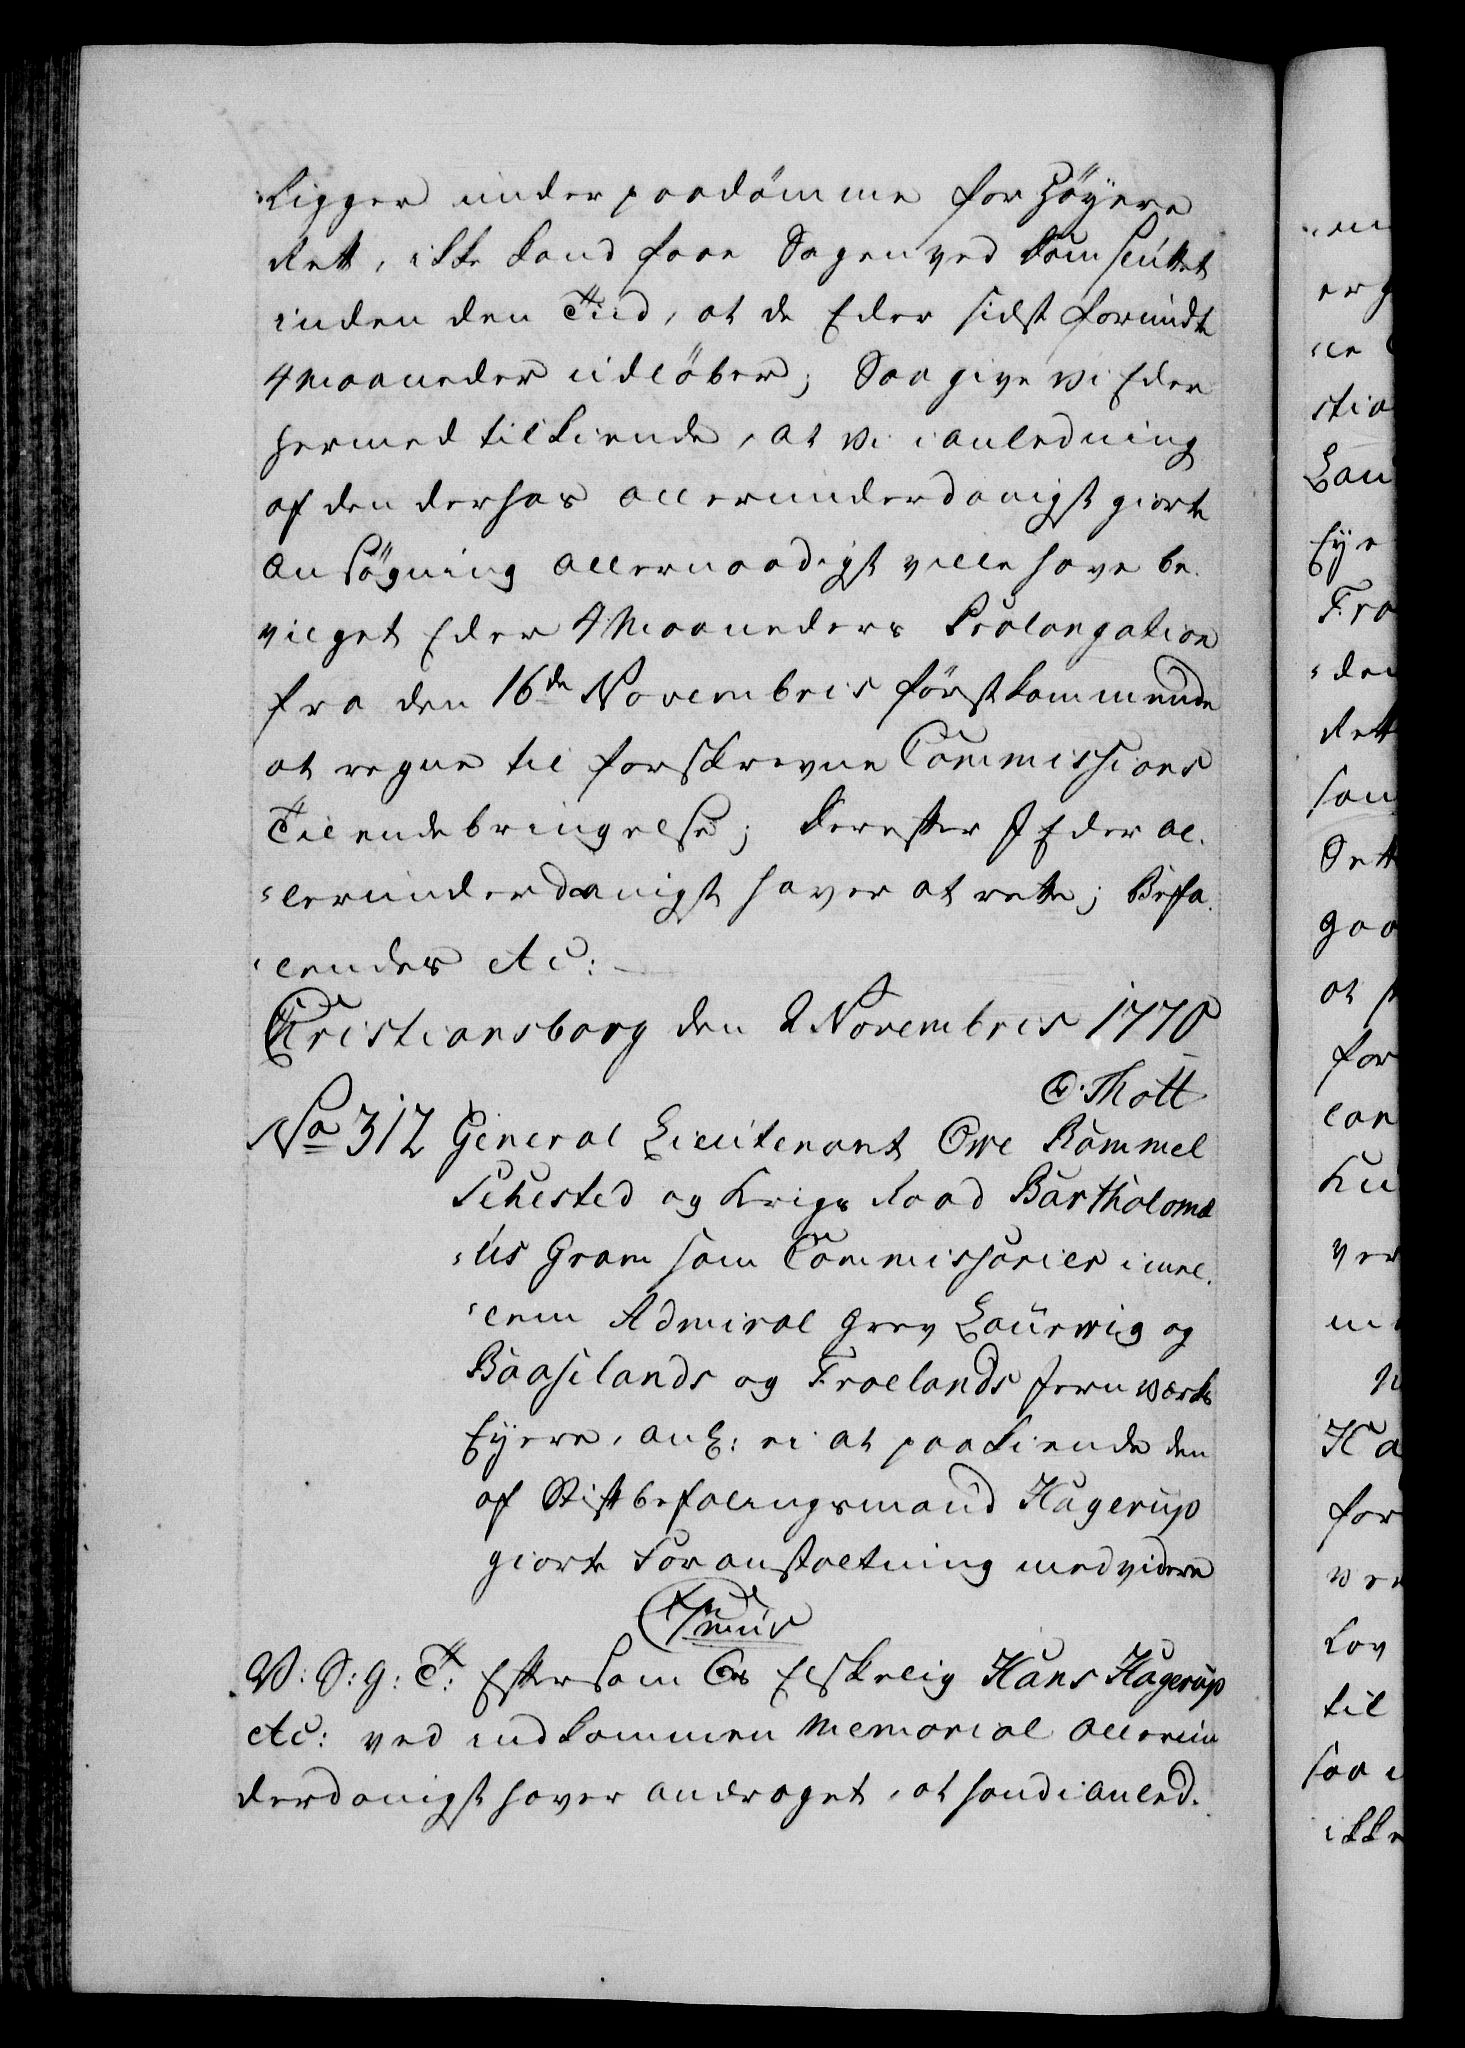 Ligger under paadömme for Höyere
Rett, ikke kand faae Sagen ved Dom sluttet
inden den Tiid, at de Eder sidst forundte
4 Maaneder udlöber; Saa give Vi Eder
hermed tilkiende, at Vi i anledning
af den derhos allerunderdanigst giorte
Ansögning allernaadigst ville have be-
vilget Eder 4 Maaneders Prolongation
fra den 16de Novembris förstkommende
at regne til forskrevne Commissions
Tilendebringelse; derefter I Eder al-
lerunderdanigst haver at rette; Befa-
lendes etc:
Christiansborg den 2 Novembris 1770
O. Thott
No 312 General Lieutenant Owe Rammel
Sehested og Krigs Raad Bartholomæ
us Gram som Commissarier imel-
lem Admiral Grev Laurwig og
Baaselands og Froelands Jernværks
Eyere, anl: ei at paakiende den
af Stiftbefalingsmand Hagerup
giorte Foranstaltning med videre
V: S: G: T: Eftersom Os Elskelig Hans Hagerup
etc: ved indkommen Memorial allerun
derdanigst haver andraget, at hand i anled-
en
er g
ne
stio
Lau
Eye
Fro
den
Rett
som
Sett
gaa
at
for
lan
Ku
ver
Ha
for
Lov
til
saa
ikke